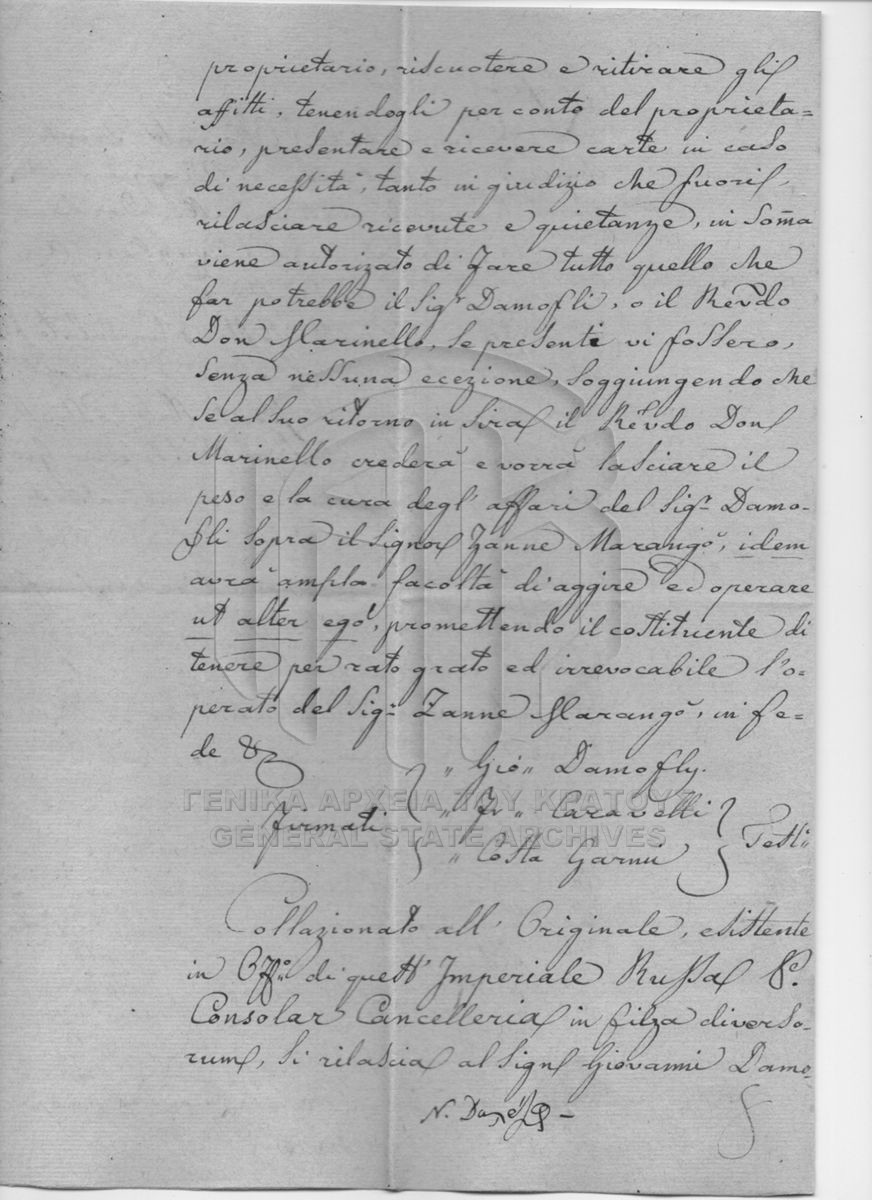 proprietario, riscuotere e ritirare gli
affitti, tenendogli per conto del proprieta=
rio, presentare e ricevere carte in caso
di necessità, tanto in giudizio che fuori,
rilasciare ricevute e quietanze, in soma
viene autorizato di fare tutto quello che
far potrebbe il Sigr Damofli, o il Revdo
Don Marinello, se presenti vi fossero,
senza nessuna ecezione, soggiungendo che
se al suo ritorno in Sira il Revdo Don
Marinello crederà e vorrà lasciare il
peso e la cura degl' affari del Sigr Damo-
fli sopra il Signor Zanne Marangò, idem
avrà ampla facoltà di aggire ed operare
ut alter ego, promettendo il costituente di
tenere per rato grato ed irrevocabile l'o-
perato del Sigr Zanne Marangò, in fe-
de &
" Gio " Damofly.
ΓΕΝΙΚΑ ΑΡΧΕΙΑ ΤΟΥ ΚΡΑΤΟΥΣ
Firmati " Fr " Caravelli Testi
GENERAL STATE ARCHIVES
" Costa Garnù
Collazionato all' Originale, esistente
in Offo di quest' Imperiale Russa V.
Consolar Cancelleria in filza diverso-
rum, si rilascia al Sign Giovanni Damo-
N.